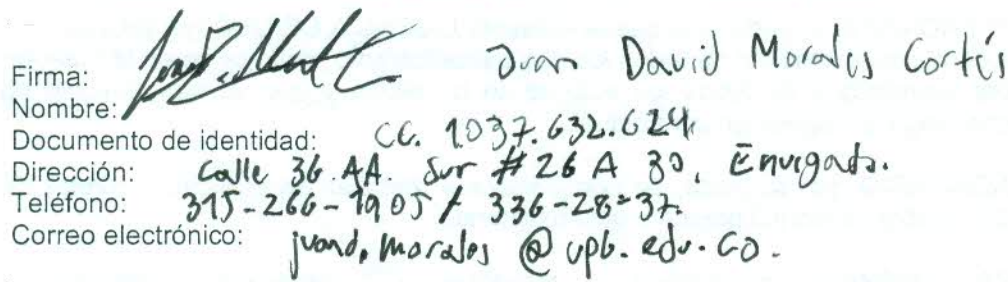 Firma: Juan David Morales Cortés
Nombre:
Documento de identidad: CC. 1.037.632.624
Dirección: Calle 36.AA. Sur # 26 A 30, Envigado.
Teléfono: 315-266-1905 / 336-28-37
Correo electrónico: juand.morales@upb.edu.co.